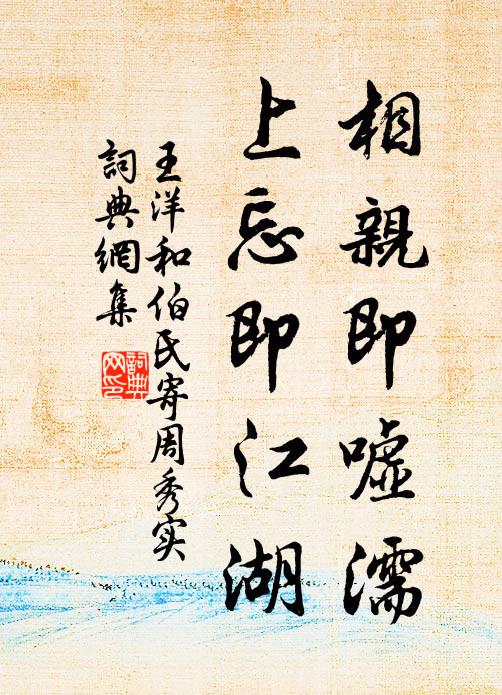 相親即噓濡
上忘即江湖
王洋和伯氏寄周秀实
詞典網集
詞典
网印